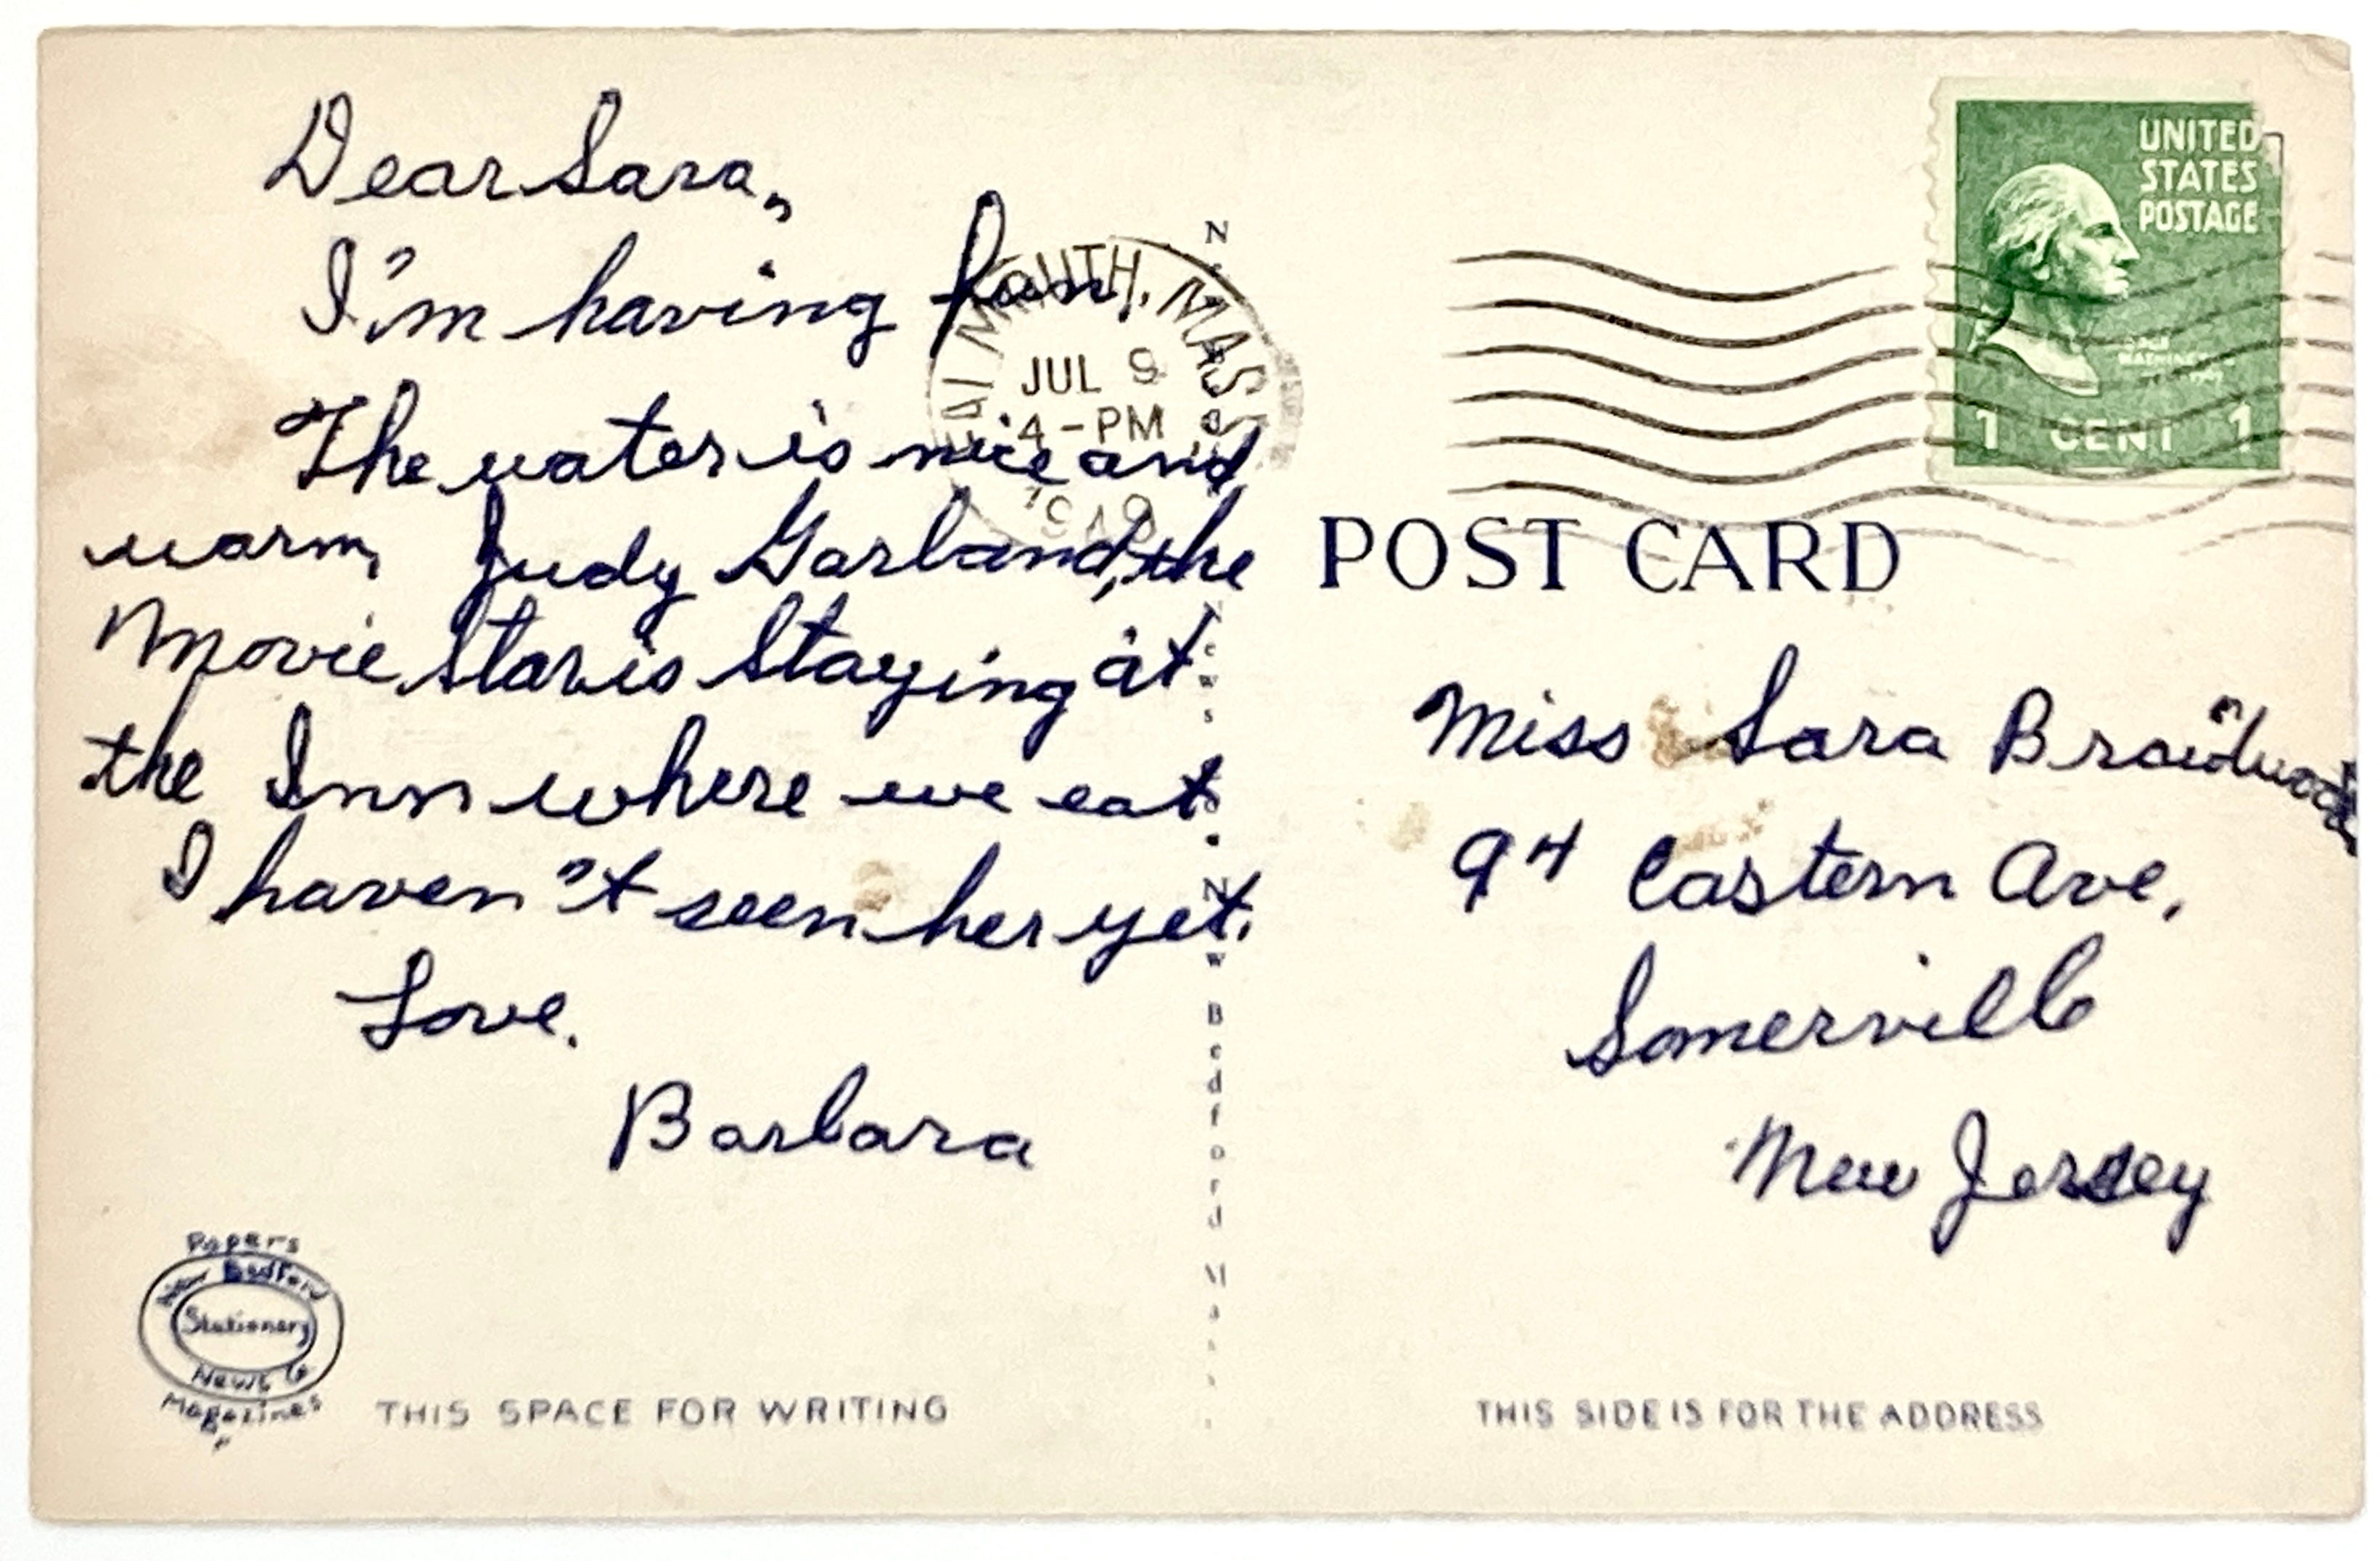 Dear Sara,
I'm having fun.
The water is nice and
warm, Judy Garland, the
Movie Star is Staying at
the Inn where we eat.
I haven't seen her yet.
Love,
Barbara
Papers
New Bedford
Stationery
News &
Magazines
THIS SPACE FOR WRITING
MOUTH, MASS
JUL 9
4-PM
New Bedford Mass.
UNITED
STATES
POSTAGE
1 CENT 1
POST CARD
Miss Sara Braidwood
94 Eastern Ave,
Somerville
New Jersey
THIS SIDE IS FOR THE ADDRESS